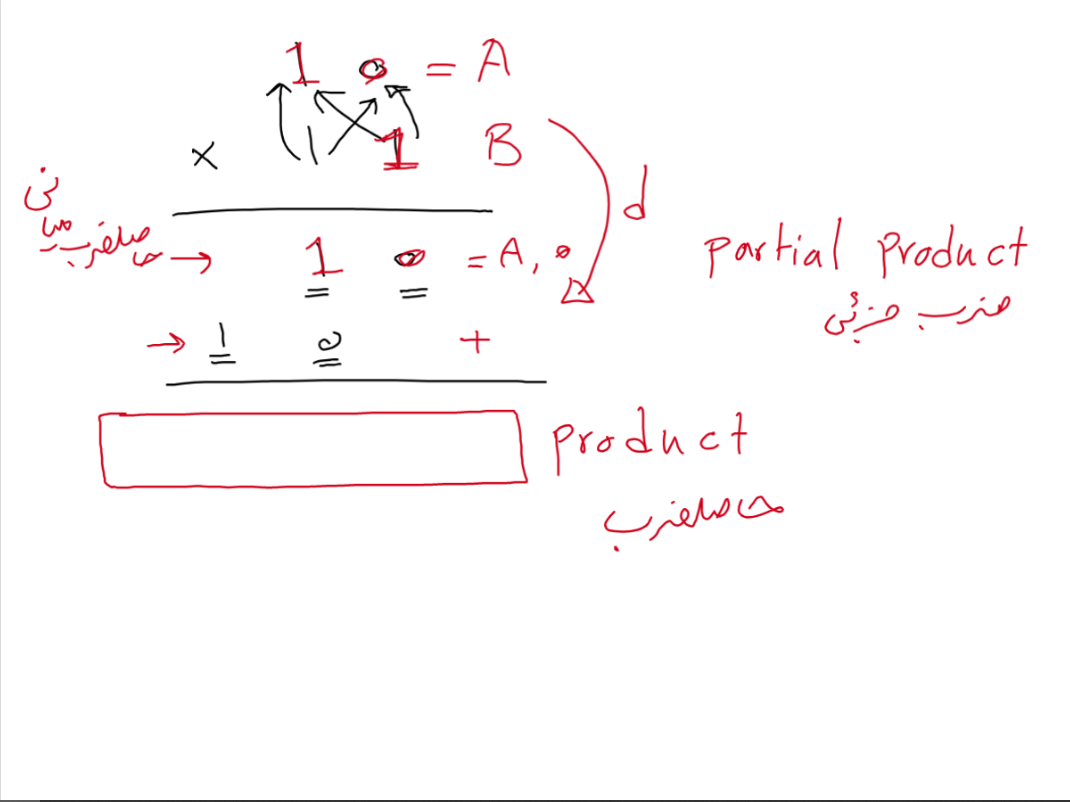 1 0 = A
× 1 1 B
d
حاصلضرب میانی → 1 0 = A, 0
partial product
ضرب جزئی
→ 1 0 +
product
حاصلضرب